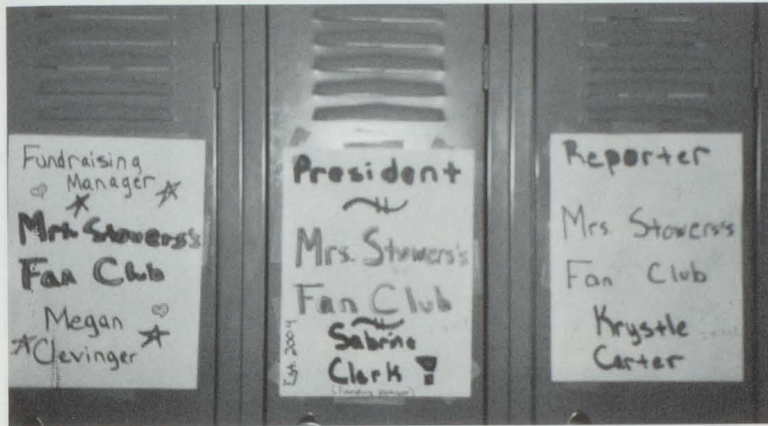 Fundraising
Manager
Mrs. Stowers's
Fan Club
Megan
Clevinger
President
Mrs. Stowers's
Fan Club
Sabrina
Clark !
Est. 2004
Reporter
Mrs. Stowers's
Fan Club
Krystle
Carter